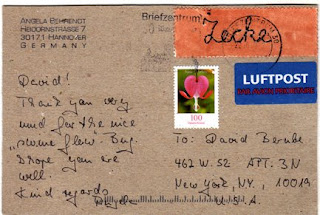 ANGELA BEHRENDT
30171 HANNOVER
GERMANY
Briefzentrum
Zecke
LUFTPOST
PAR AVION PRIORITAIRE
100
David!
Thank you very
much for the nice
Bug.
I hope you are
well.
Kind regards
To: David Berube
462 W. 52 APT. 3N
New York, NY, 10019
U.S.A.